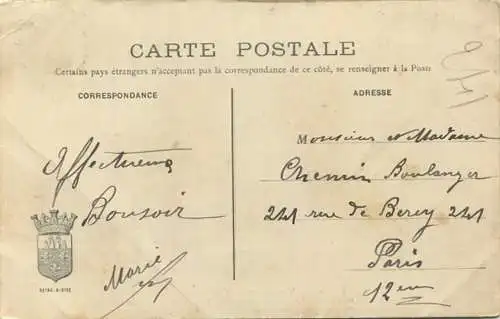 CARTE POSTALE
Certains pays étrangers n'acceptant pas la correspondance de ce côté, se renseigner à la Poste
CORRESPONDANCE
ADRESSE
Affectueux
Bonsoir
Marie
Monsieur et Madame
Chemin Boulanger
241 rue de Bercy 241
Paris
12em
241